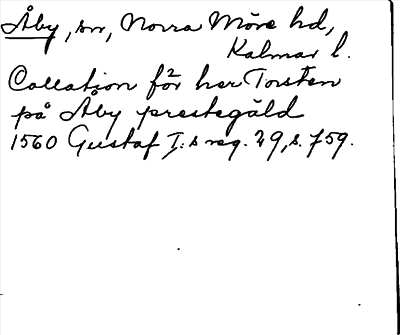 Åby, sn, Norra Möre hd,
Kalmar l.
Collation för her Torsten
på Åby prestegäld
1560 Gustaf I:s reg. 29, s. 759.